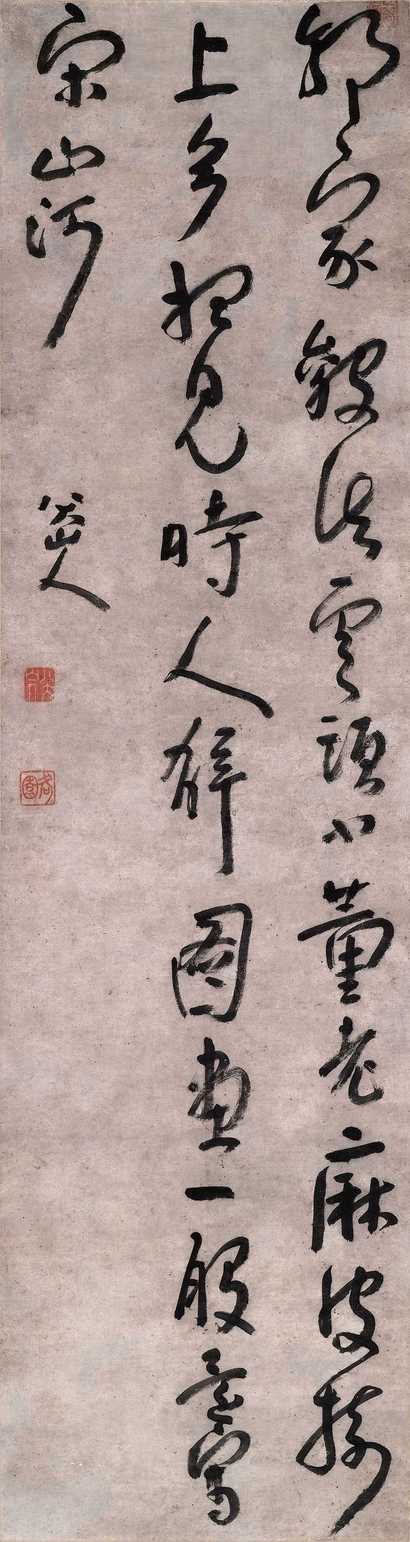 郭家皴法雲頭小董老麻皮樹
上多想見時人解圖畫一峯還寫
宋山河
八大山人